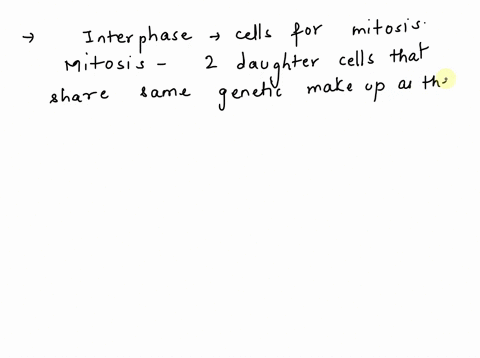 → Interphase → cells for mitosis.
Mitosis - 2 daughter cells that
share same genetic make up as the